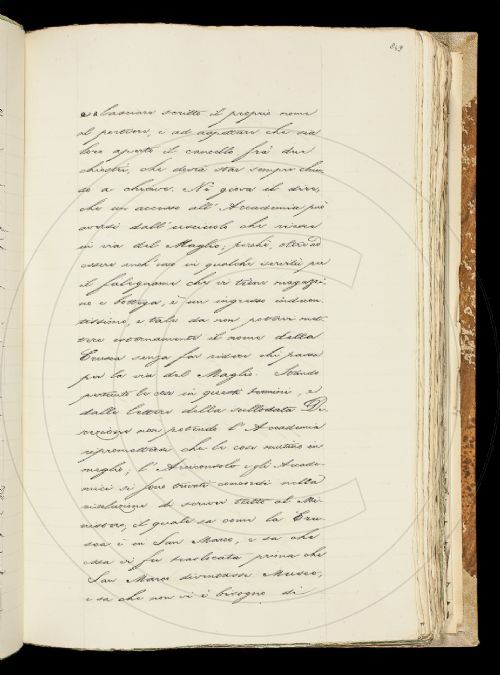 849
e a lasciare scritto il proprio nome
al portiere, e ad aspettare che sia
loro aperto il cancello fra i due
chiostri, che dovrà star sempre chiu-
so a chiave. Né giova il dire,
che un accesso all'Accademia può
aversi dall'usciuolo che riesce
in via del Maglio; perchè, oltre ad
essere anch'esso in qualche servitù per
il falegname che vi tiene magazzi-
no e bottega, è un ingresso indecen-
tissimo, e tale da non potervi met-
tere esternamente il nome della
Crusca senza far ridere chi passa
per la via del Maglio. Stando
pertanto la cosa in questi termini, e
dalle lettere della sullodata Di-
rezione non potendo l'Accademia
ripromettersi che la cosa mutasse in
meglio; l'Arciconsolo e gli Accade-
mici si sono trovati concordi nella
risoluzione di scriver tutto al Mi-
nistero, il quale sa come la Cru-
sca è in San Marco, e sa che
essa vi fu traslocata prima che
San Marco diventasse Museo,
e sa che non vi è bisogno di